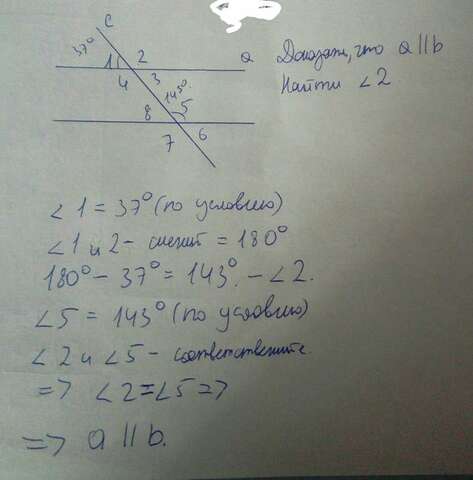 c
37°
1 2
a
4 3
143°
8 5
7 6
Доказать, что a || b
Найти ∠2.
∠1 = 37° (по условию)
∠1 и 2 - смежн = 180°
180° - 37° = 143°. - ∠2.
∠5 = 143° (по условию)
∠2 и ∠5 - соответствените
=> ∠2 = ∠5 =>
=> a || b.